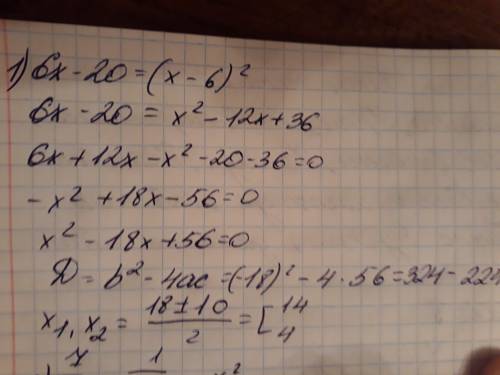 1) 6x - 20 = (x - 6)²
6x - 20 = x² - 12x + 36
6x + 12x - x² - 20 - 36 = 0
- x² + 18x - 56 = 0
x² - 18x + 56 = 0
D = b² - 4ac = (-18)² - 4 · 56 = 324 - 224
x₁, x₂ = (18 ± 10)/2 = [14 4